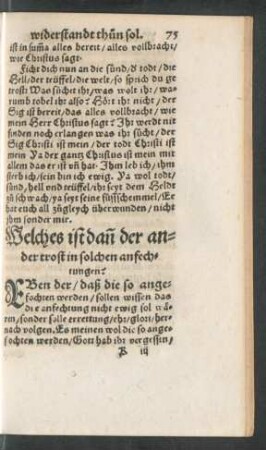 widerstandt thůn sol. 75
ist in sum̃a alles bereit / alles vollbracht /
wie Christus sagt.
Ficht dich nun an die sünd / d todt / die
Hell / der teüffel / die welt / so sprich du ge
trost: Was sůcht ihr / was wolt ihr / wa-
rumb tobel ihr also? Hört ihr nicht / der
Sig ist bereit / das alles vollbracht / wie
mein Herr Christus sagt? Ihr werdt nit
finden noch erlangen was ihr sůcht / der
Sig Christi ist mein / der todt Christi ist
mein Ya der gantz Christus ist mein mit
allem das er ist vñ hat. Ihm leb ich / ihm
sterb ich / sein bin ich ewig. Ya wol todt /
sünd / hell vnd teüffel / ihr seyt dem Heldt
zů schwach / ya seyt seine fůßschemmel / Er
hat euch all zůgleych überwunden / nicht
ihm sonder mir.
Welches ist dañ der an-
der trost in solchen anfech-
tungen?
EBen der / daß die so ange-
fochten werden / sollen wissen das
die anfechtung nicht ewig sol wä-
ren / sonder solle errettung / ehr / glori / her-
nach volgen. Es meinen wol die so ange-
fochten werden / Gott hab ihr vergessen /
K iij